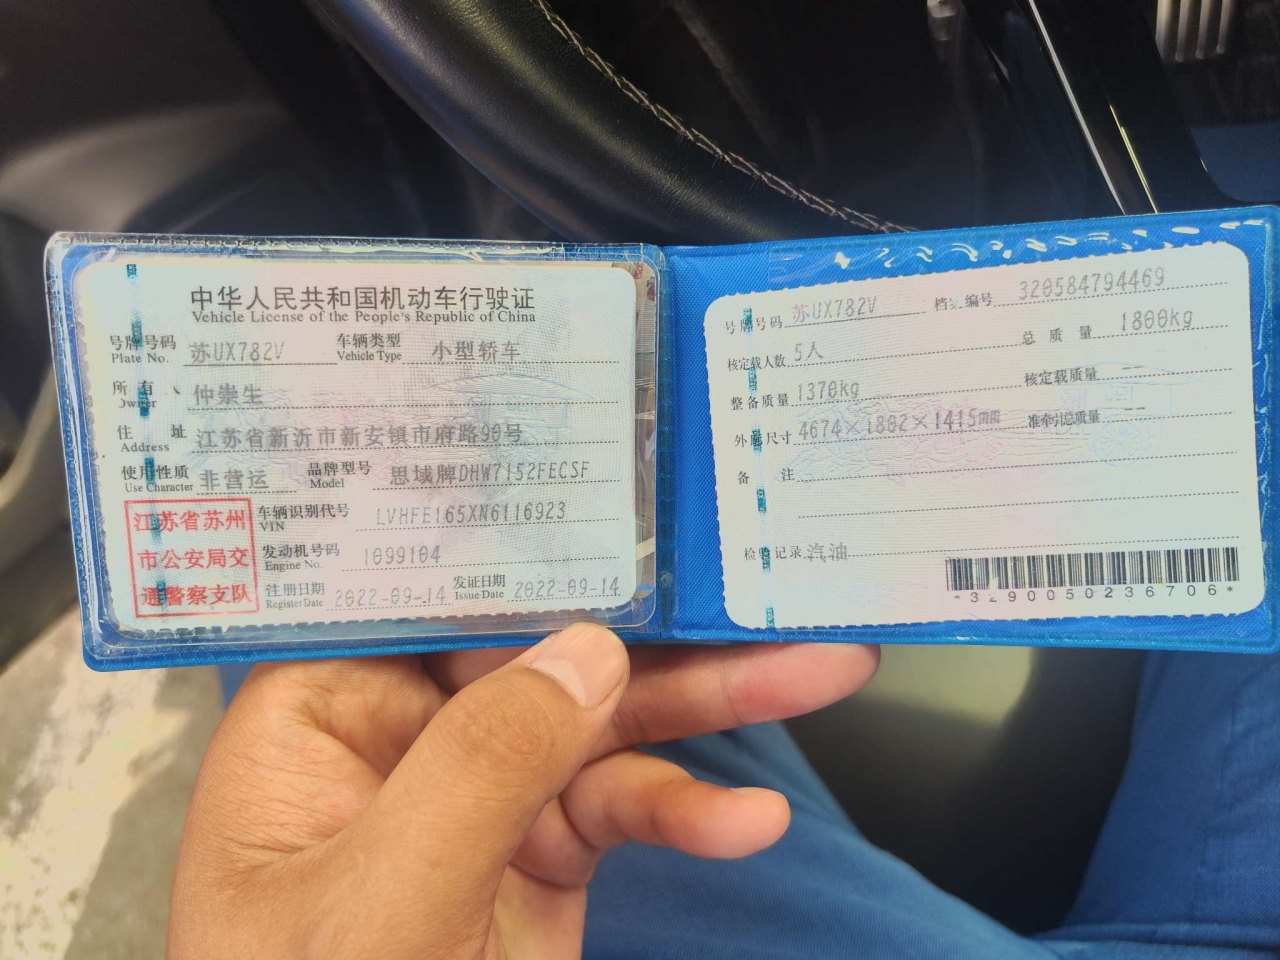 中华人民共和国机动车行驶证
Vehicle License of the People's Republic of China
号牌号码 苏UX782V 车辆类型 小型轿车
Plate No. Vehicle Type
所有 仲崇生
Owner
住址 江苏省新沂市新安镇市府路90号
Address
使用性质 非营运 品牌型号 思域牌DHW7152FECSF
Use Character Model
江苏省苏州
市公安局交
通警察支队
车辆识别代号 LVHFE165XN6116923
VIN
发动机号码 1099104
Engine No.
注册日期 2022-09-14 发证日期 2022-09-14
Register Date Issue Date
号牌号码 苏UX782V 档 编号 320584794469
核定载人数 5人 总质量 1800kg
整备质量 1370kg 核定载质量 --
外廓尺寸 4674×1802×1415mm 准牵引总质量 --
备注
检验记录 汽油
*3290050236706*